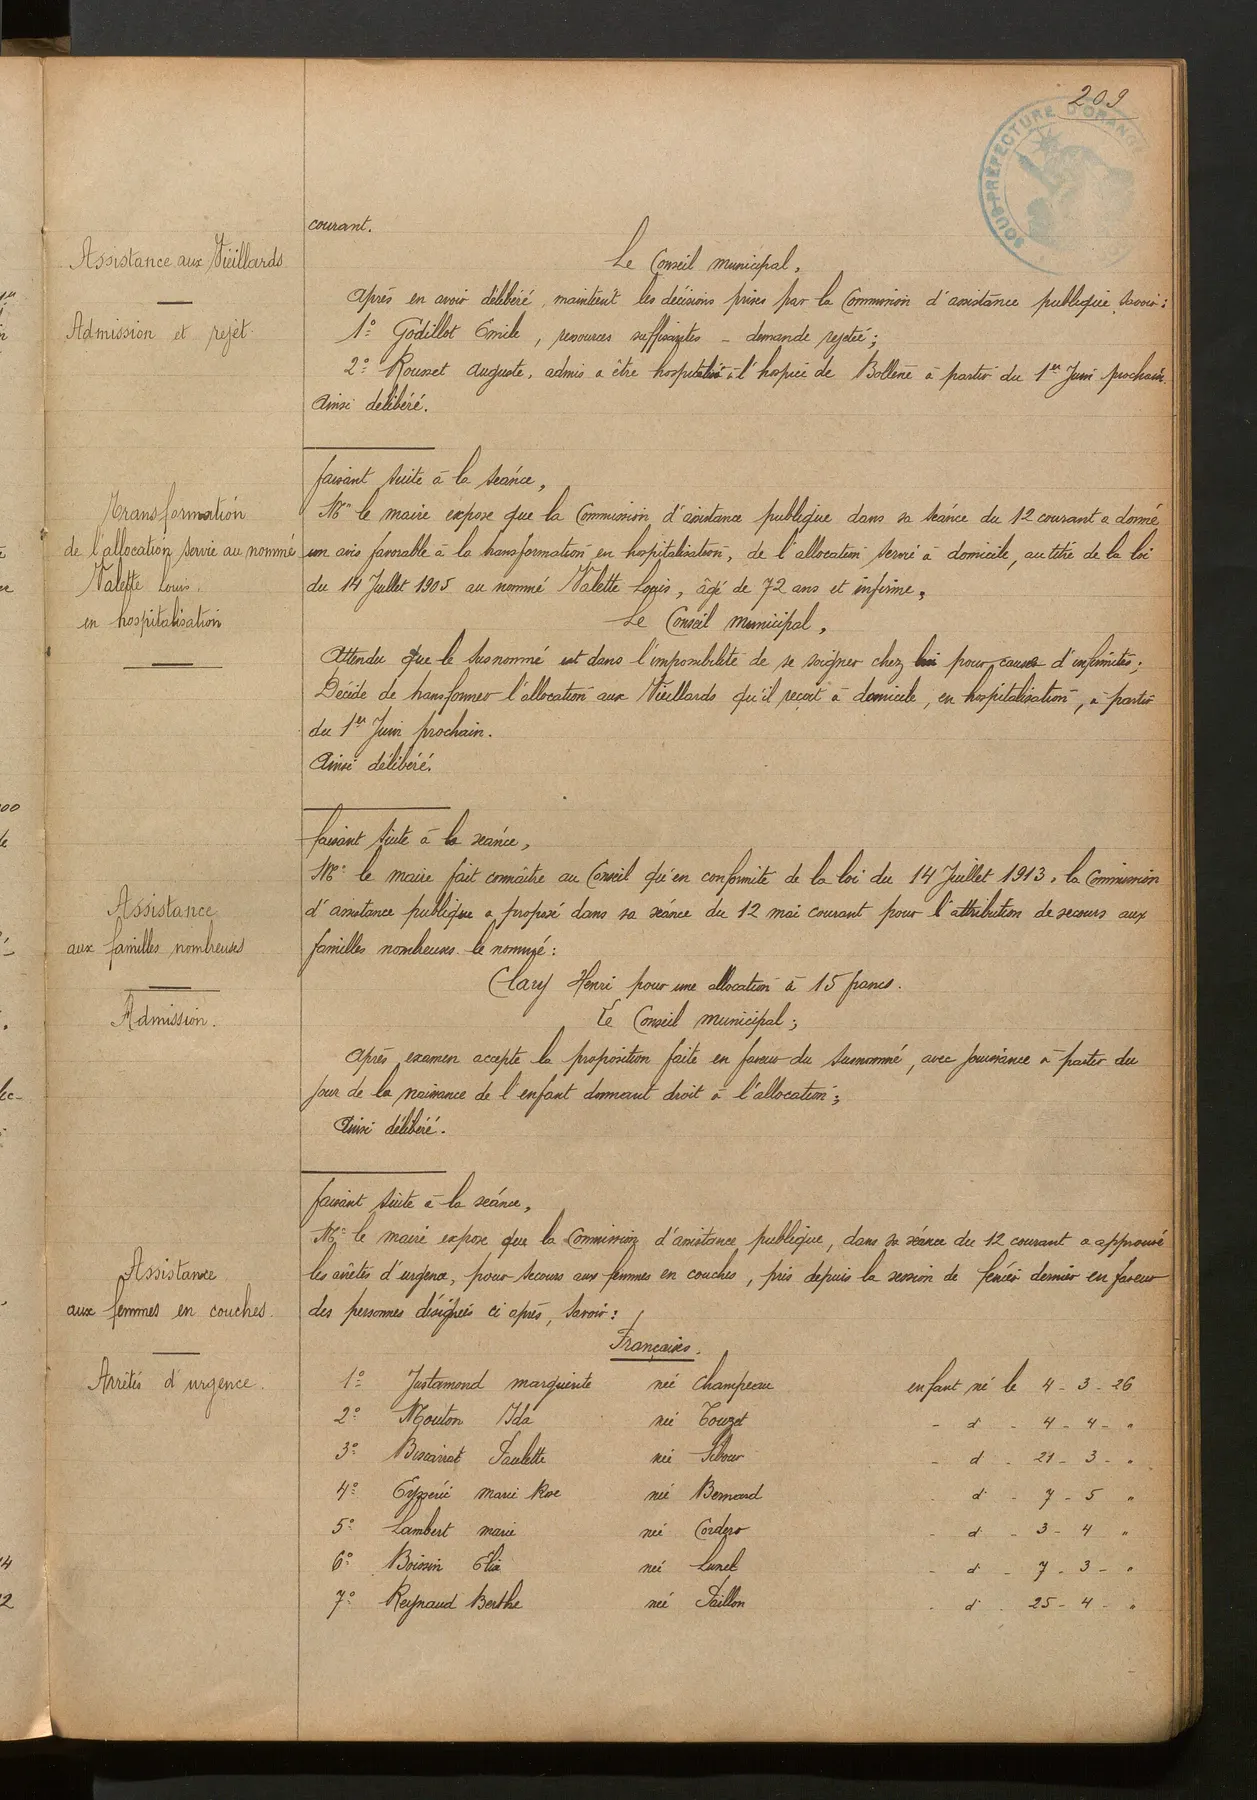 209
SOUS-PRÉFECTURE D'ORANGE
courant.
Assistance aux Vieillards
Admission et rejet.
Le Conseil municipal,
Après en avoir délibéré, maintient les décisions prises par la Commission d'assistance publique, savoir:
1º Godillot Emile, ressources suffisantes - demande rejetée;
2º Rousset Auguste, admis à être hospitalisé à l'hospice de Bollène à partir du 1er Juin prochain.
Ainsi délibéré.
Transformation
de l'allocation servie au nommé
Valette Louis.
en hospitalisation
faisant suite à la séance,
Mr le maire expose que la Commission d'assistance publique dans sa séance du 12 courant a donné
un avis favorable à la transformation en hospitalisation, de l'allocation servie à domicile, au titre de la loi
du 14 Juillet 1905 au nommé Valette Louis, âgé de 72 ans et infirme,
Le Conseil municipal,
Attendu que le susnommé est dans l'impossibilité de se soigner chez lui pour causes d'infirmités;
Décide de transformer l'allocation aux Vieillards qu'il reçoit à domicile, en hospitalisation, à partir
du 1er Juin prochain.
Ainsi délibéré.
Assistance
aux familles nombreuses
Admission.
faisant suite à la séance,
Mr le maire fait connaître au Conseil qu'en conformité de la loi du 14 Juillet 1913, la Commission
d'assistance publique a proposé dans sa séance du 12 mai courant pour l'attribution de secours aux
familles nombreuses le nommé:
Clary Henri pour une allocation à 15 francs.
Le Conseil municipal;
Après examen accepte la proposition faite en faveur du susnommé, avec jouissance à partir du
jour de la naissance de l'enfant donnant droit à l'allocation;
Ainsi délibéré.
Assistance
aux femmes en couches.
Arrêtés d'urgence.
faisant suite à la séance,
Mr le maire expose que la Commission d'assistance publique, dans sa séance du 12 courant a approuvé
les arrêtés d'urgence, pour secours aux femmes en couches, pris depuis la session de février dernier en faveur
des personnes désignées ci après, savoir:
Françaises.
1º Justamond marguerite née Champeau enfant né le 4-3-26
2º Mouton Ida née Touzet - d - 4-4-"
3º Biscarrat Paulette née Sibour - d - 21-3-"
4º marie Rose née Bernard - d - 7-5 "
5º Lambert marie née Cordero - d - 3-4 "
6º Boissin Elix née Lunel - d - 7-3-"
7º Reynaud Berthe née Saillon - d - 25-4-"